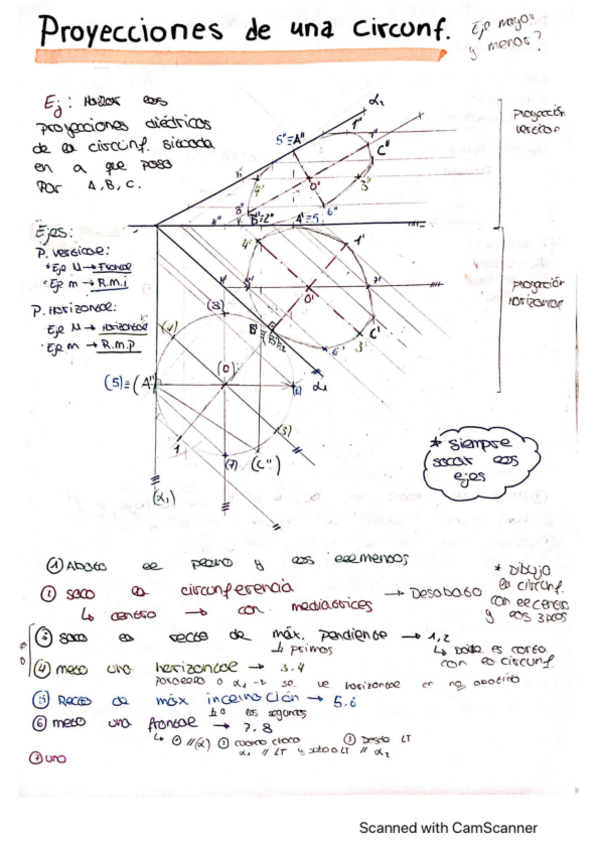 Proyecciones de una circunf.
Eje mayor
y menor?
Ej: Hallar las
proyecciones diédricas
de la circunf. situada
en α que pasa
por A, B, C.
α₂
5"≡A"
1"
C"
O"
3"
6"
B"
A'≡5'
proyección
vertical
Ejes:
P. vertical:
* Eje M → Frontal
* Eje m → R.m.i
P. Horizontal:
Eje M → Horizontal
Eje m → R.m.p
4'
1'
7'
O'
C'
3'
6'
B'
α₁
proyección
horizontal
(8)
(4)
(O)
(5)≡(A")
(6)
(3)
1
(7)
(C")
(α₁)
* siempre
sacar los
ejes
① Abato el plano y los elementos
① saco la circunferencia → Desabato
↳ centro → con mediatrices
* Dibujo
la circunf.
con el centro
y los 3 ptos
③ saco la recta de máx. pendiente → 1,2
↳ primas
↳ Donde es corta
con la circunf.
④ meto una horizontal → 3.4
paralelo a α₁ → se ve horizontal en no abatido
⑤ Recta de máx inclinación → 5.6
↳ a las segundas
⑥ meto una frontal → 7.8
α₁ // LT y subo a LT // α₂
③ Desde LT
① uno
Scanned with CamScanner